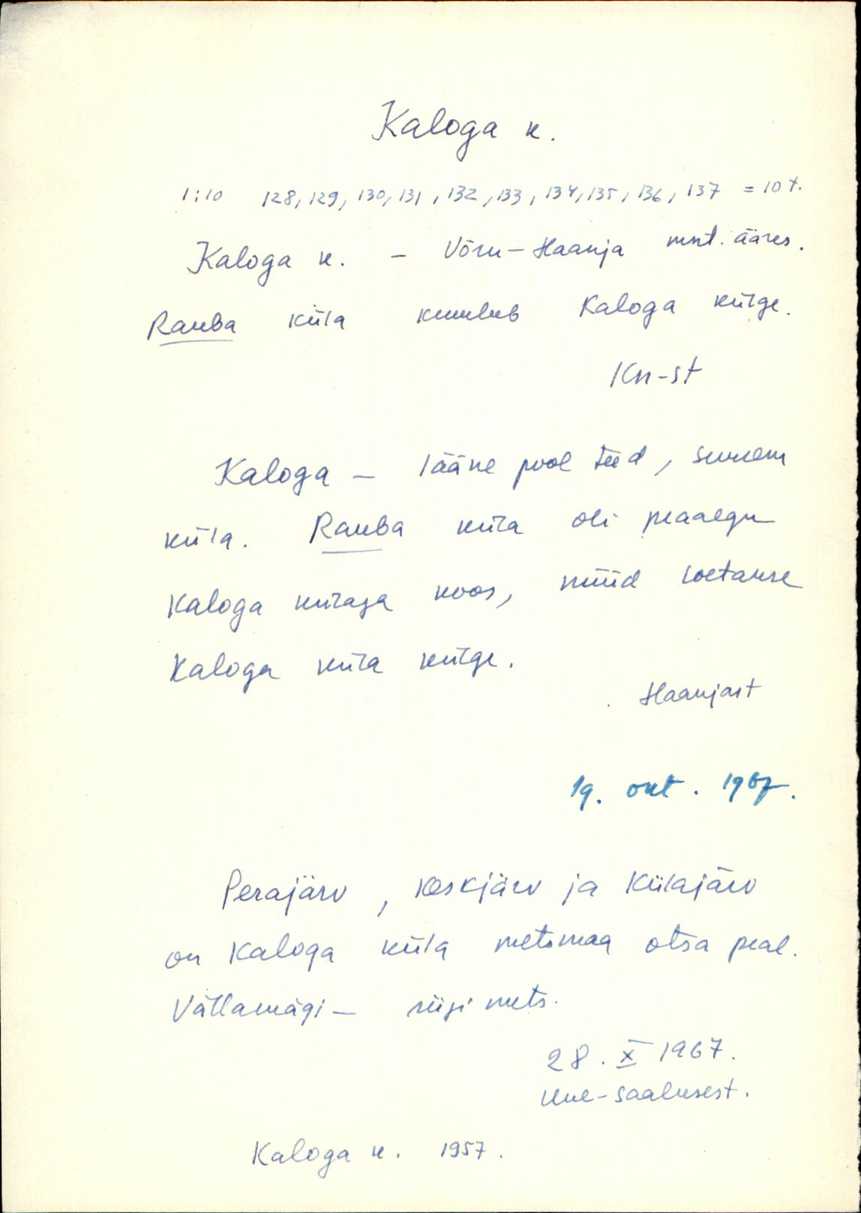 Kaloga k.
1:10 128, 129, 130, 131, 132, 133, 134, 135, 136, 137 = 10 t.
Kaloga k. – Võru–Haanja mnt. ääres.
Rauba küla kuulub Kaloga külge.
Kn-st
Kaloga – lääne pool teed, suurem
küla. Rauba küla oli peaaegu
Kaloga külaga koos, nüüd loetakse
Kaloga küla külge.
Haanjast
19. okt. 1967.
Perajärv, Keskjärv ja Külajärv
on Kaloga küla metsmaa otsa peal.
Vällamägi – riigi mets.
28. X 1967.
Uue-Saalusest.
Kaloga k. 1957.